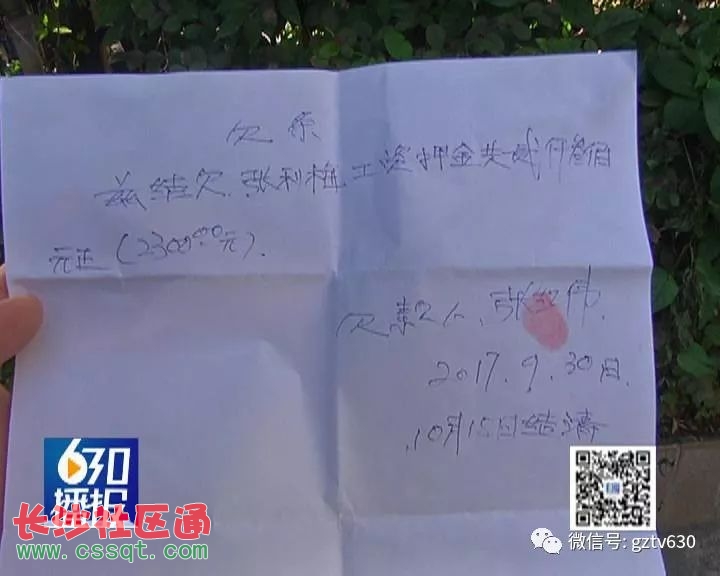 欠条
兹结欠张利梅工资押金共贰仟叁佰
元正(2300.00元).
欠款人.张红伟.
2017.9.30日.
10月15日结清
630
播报
长沙社区通
www.cssqt.com
微信号: gztv630